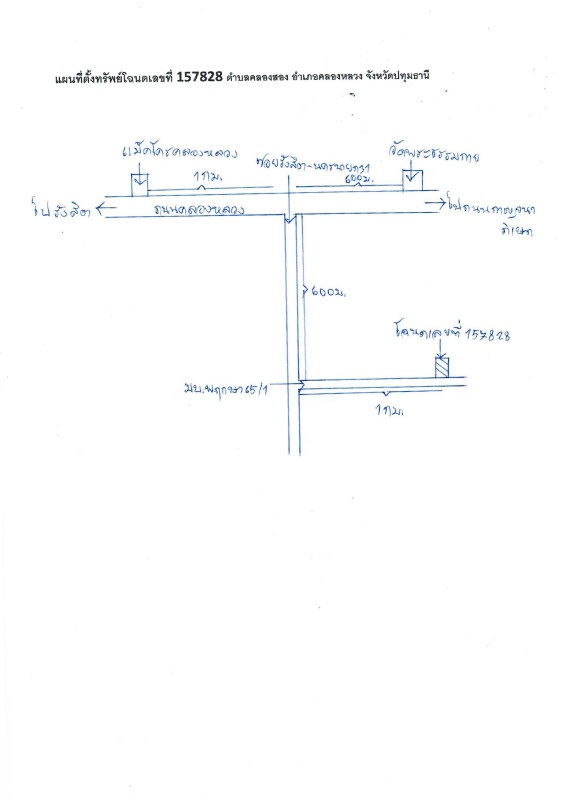 แผนที่ตั้งทรัพย์โฉนดเลขที่ 157828 ตำบลคลองสอง อำเภอคลองหลวง จังหวัดปทุมธานี
แม็คโครคลองหลวง
ซอยรังสิต-นครนายก
วัดพระธรรมกาย
1 กม.
600 ม.
ไปรังสิต
ถนนคลองหลวง
ไปถนนกาญจนา
ภิเษก
600 ม.
โฉนดเลขที่ 157828
มบ.พฤกษา 65/1
1 กม.